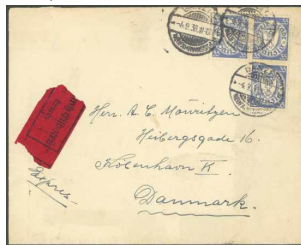 Herrn A. C. Mouritzen
Heibergsgade 16.
København K.
Danmark.
Expres